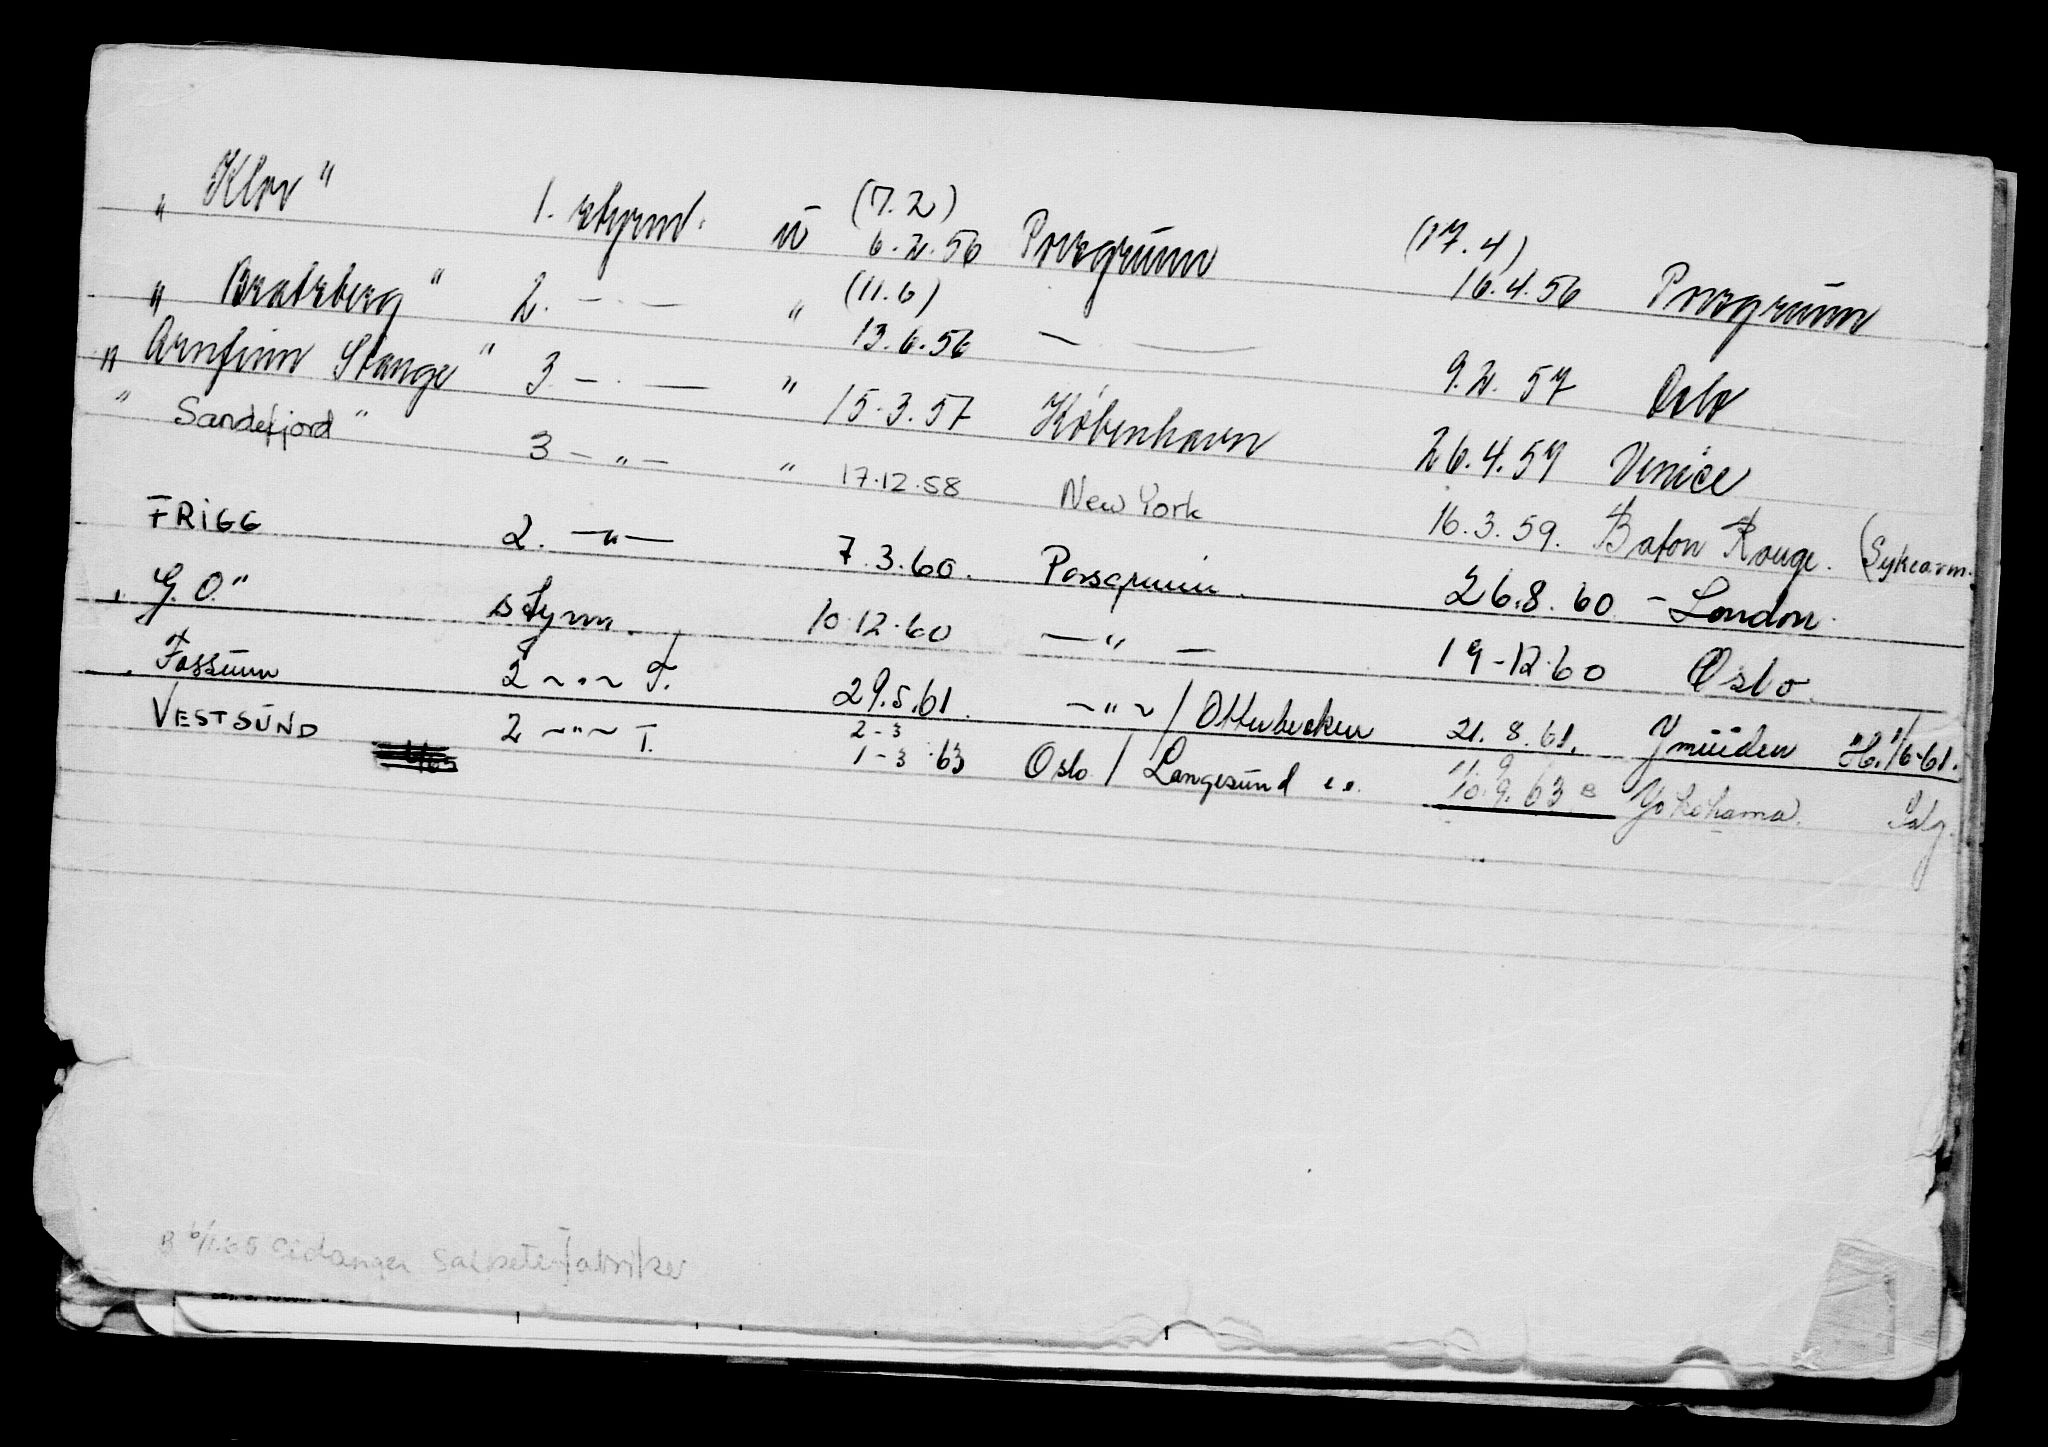 „ Klor " 1. styrm. ũ (7.2) 6.2.56 Porsgrunn (17.4) 16.4.56 Porsgrunn
„ Bratsberg " 2. — · — " (11.6) 13.6.56 — — 9.2.57 Oslo
„ Arnfinn Stange " 3. — · — " 15.3.57 København 26.4.57 Venice
" Sandefjord " 3 — " — " 17.12.58 New York 16.3.59. Baton Rouge. (Sykeavm.
FRIGG 2. — " — 7.3.60. Porsgrunn. 26.8.60 - London.
„ G.O." styrm. 10.12.60 — " — 19-12.60 Oslo.
„ Fossum 2 ~ " ~ T. 29.5.61. ~ " ~ / Otterbecken 21.8.61. Ymüiden H. 1/6-61.
VESTSUND 2 ~ " ~ T. 2-3 1-3.63 Oslo / Langesund 10.9.63 Yokohama. Salg.
B 6/1.65 Eidanger Salpeterfabrikker